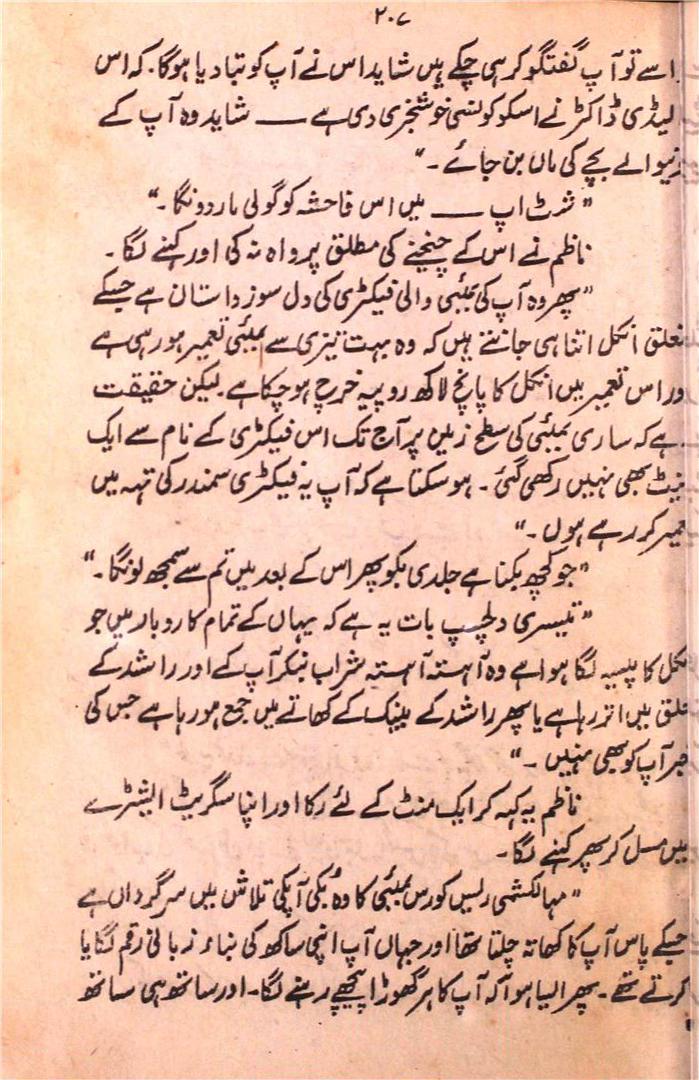 ۲۰۷
اسے تو آپ گفتگو کر ہی چکے ہیں شاید اس نے آپ کو بتا دیا ہوگا. کہ اس
لیڈی ڈاکٹر نے اسکو کونسی خوشخبری دی ہے ــــ شاید وہ آپ کے
نیوالے بچے کی ماں بن جائے ۔"
"شٹ اپ ــــ میں اس فاحشہ کو گولی مار دونگا ۔"
ناظم نے اس کے چیخنے کی مطلق پرواہ نہ کی اور کہنے لگا ۔
"پھر وہ آپ کی بمبئی والی فیکٹری کی دل سوز داستان ہے جسکے
تعلق انکل اتنا ہی جانتے ہیں کہ وہ بہت تیزی سے بمبئی تعمیر ہو رہی ہے
ور اس تعمیر میں انکل کا پانچ لاکھ روپیہ خرچ ہو چکا ہے. لیکن حقیقت
ہے کہ ساری بمبئی کی سطح زمین پر آج تک اس فیکٹری کے نام سے ایک
ینٹ بھی نہیں رکھی گئی ۔ ہو سکتا ہے کہ آپ یہ فیکٹری سمندر کی تہہ میں
میر کر رہے ہوں ۔"
"جو کچھ بکنا ہے جلدی بکو پھر اس کے بعد میں تم سے سمجھ لونگا ۔"
"تیسری دلچسپ بات یہ ہے کہ یہاں کے تمام کاروبار میں جو
نکل کا پیسہ لگا ہوا ہے وہ آہستہ آہستہ شراب بنکر آپ کے اور راشد کے
حلق میں اتر رہا ہے یا پھر راشد کے بینک کے کھاتے میں جمع ہو رہا ہے جس کی
خبر آپ کو بھی نہیں ۔"
ناظم یہ کہہ کر ایک منٹ کے لئے رکا اور اپنا سگریٹ ایشٹرے
میں مسل کر پھر کہنے لگا ۔
"مہالکشمی ریس کورس بمبئی کا وہ بُکی آپکی تلاش میں سرگرداں ہے
جسکے پاس آپ کا کھاتہ چلتا تھا اور جہاں آپ اپنی ساکھ کی بناء زبانی رقم لگایا
کرتے تھے ۔ پھر ایسا ہوا کہ آپ کا ہر گھوڑا پیچھے رہنے لگا ۔ اور ساتھ ہی ساتھ